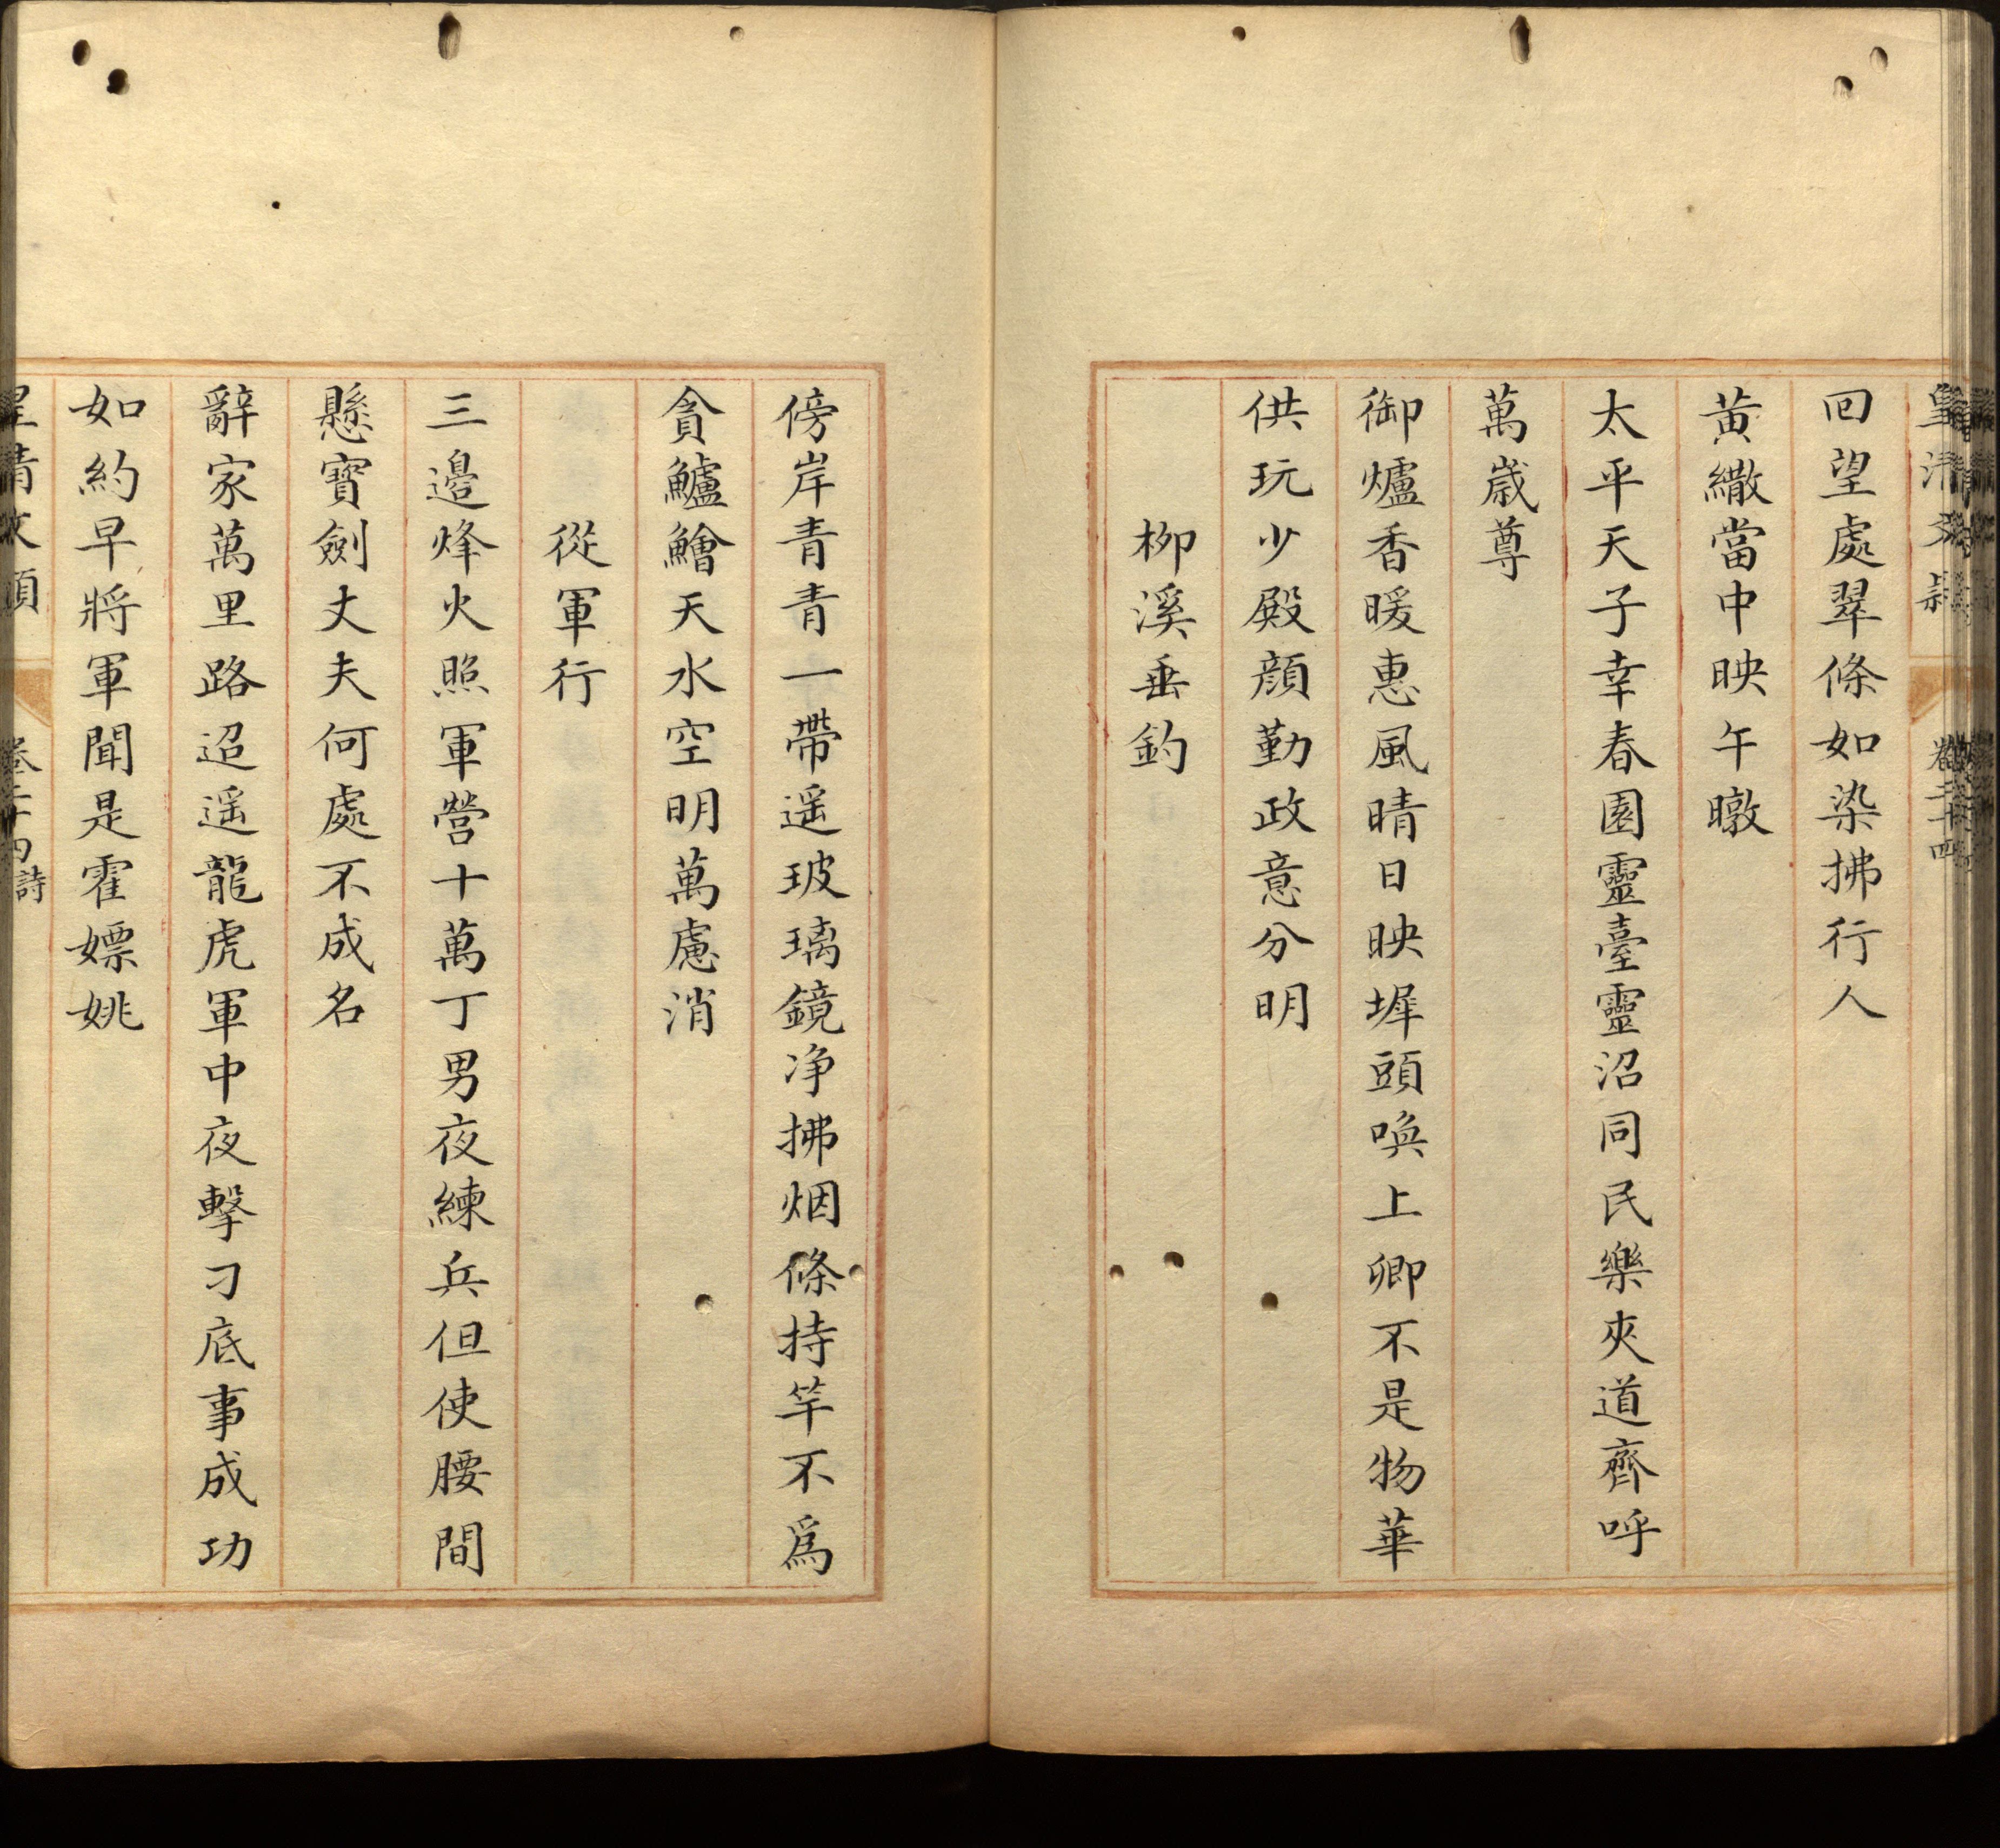 皇清文穎 卷二十四
回望處翠條如染拂行人
黃繖當中映午暾
太平天子幸春園靈臺靈沼同民樂夾道齊呼
萬歲尊
御爐香暖惠風晴日映墀頭喚上卿不是物華
供玩少殿顏勤政意分明
柳溪垂釣
傍岸青青一帶遥玻璃鏡净拂烟條持竿不爲
貪鱸鱠天水空明萬慮消
從軍行
三邉烽火照軍營十萬丁男夜練兵但使腰間
懸寶劍丈夫何處不成名
辭家萬里路迢遥龍虎軍中夜擊刁底事成功
如約早將軍聞是霍嫖姚
皇清文穎 卷二十四詩